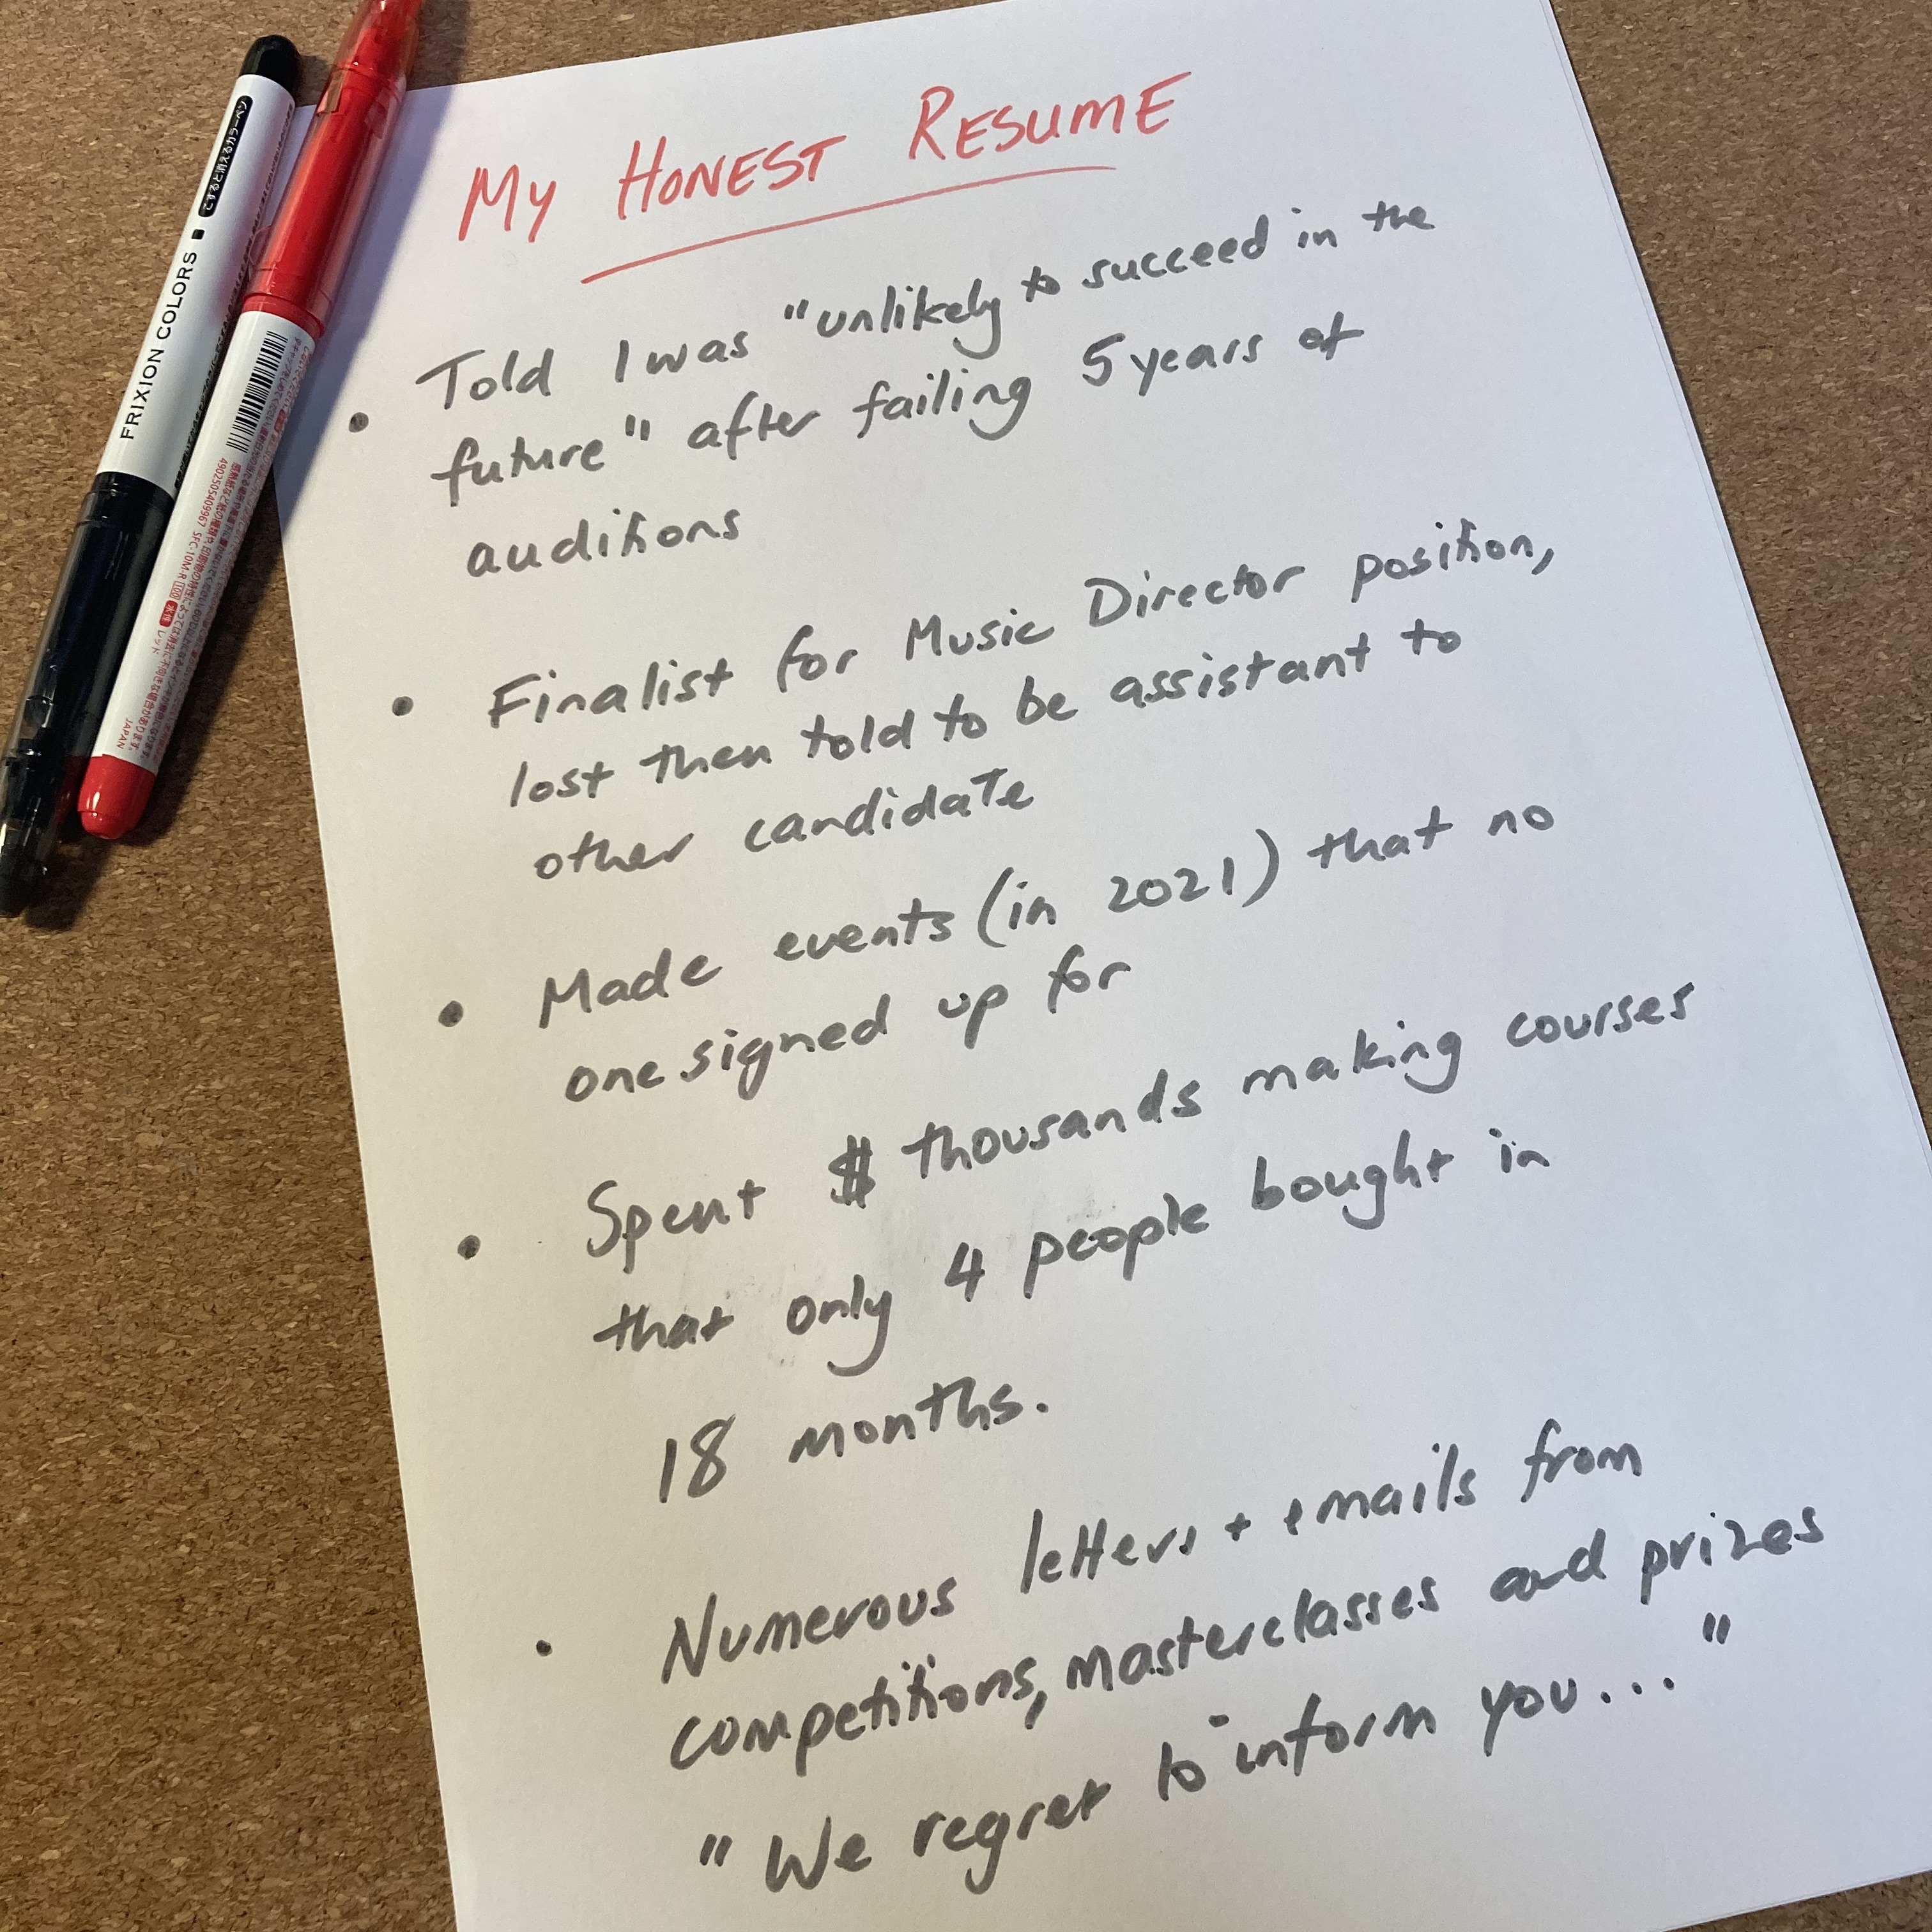 My HONEST RESUME
• Told I was "unlikely to succeed in the
future" after failing 5 years of
auditions
• Finalist for Music Director position,
lost then told to be assistant to
other candidate
• Made events (in 2021) that no
one signed up for
• Spent $ thousands making courses
that only 4 people bought in
18 months.
• Numerous letters + emails from
competitions, masterclasses and prizes
"We regret to inform you..."
FRIXION COLORS
こすると消えるカラーペン
4902505409967 SFC-10M-R
レッド
JAPAN